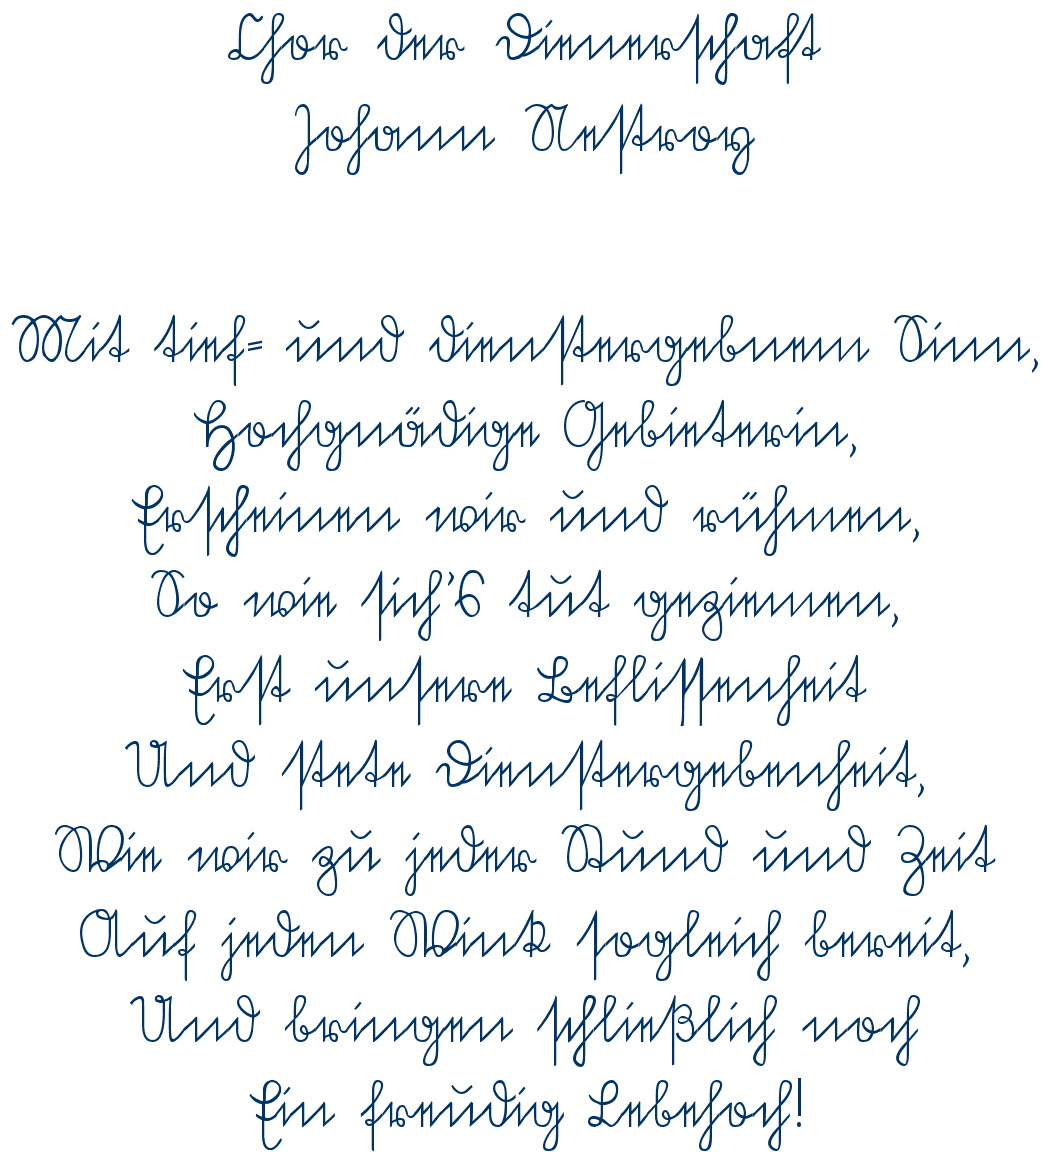 Chor der Dienerschaft
Johann Nestroy
Mit tief= und dienstergebnem Sinn,
Hochgnädige Gebieterin,
Erscheinen wir und rühmen,
So wie sich's tut geziemen,
Erst unsere Beflissenheit
Und stete Dienstergebenheit,
Wie wir zu jeder Stund und Zeit
Auf jeden Wink sogleich bereit,
Und bringen schließlich noch
Ein freudig Lebehoch!